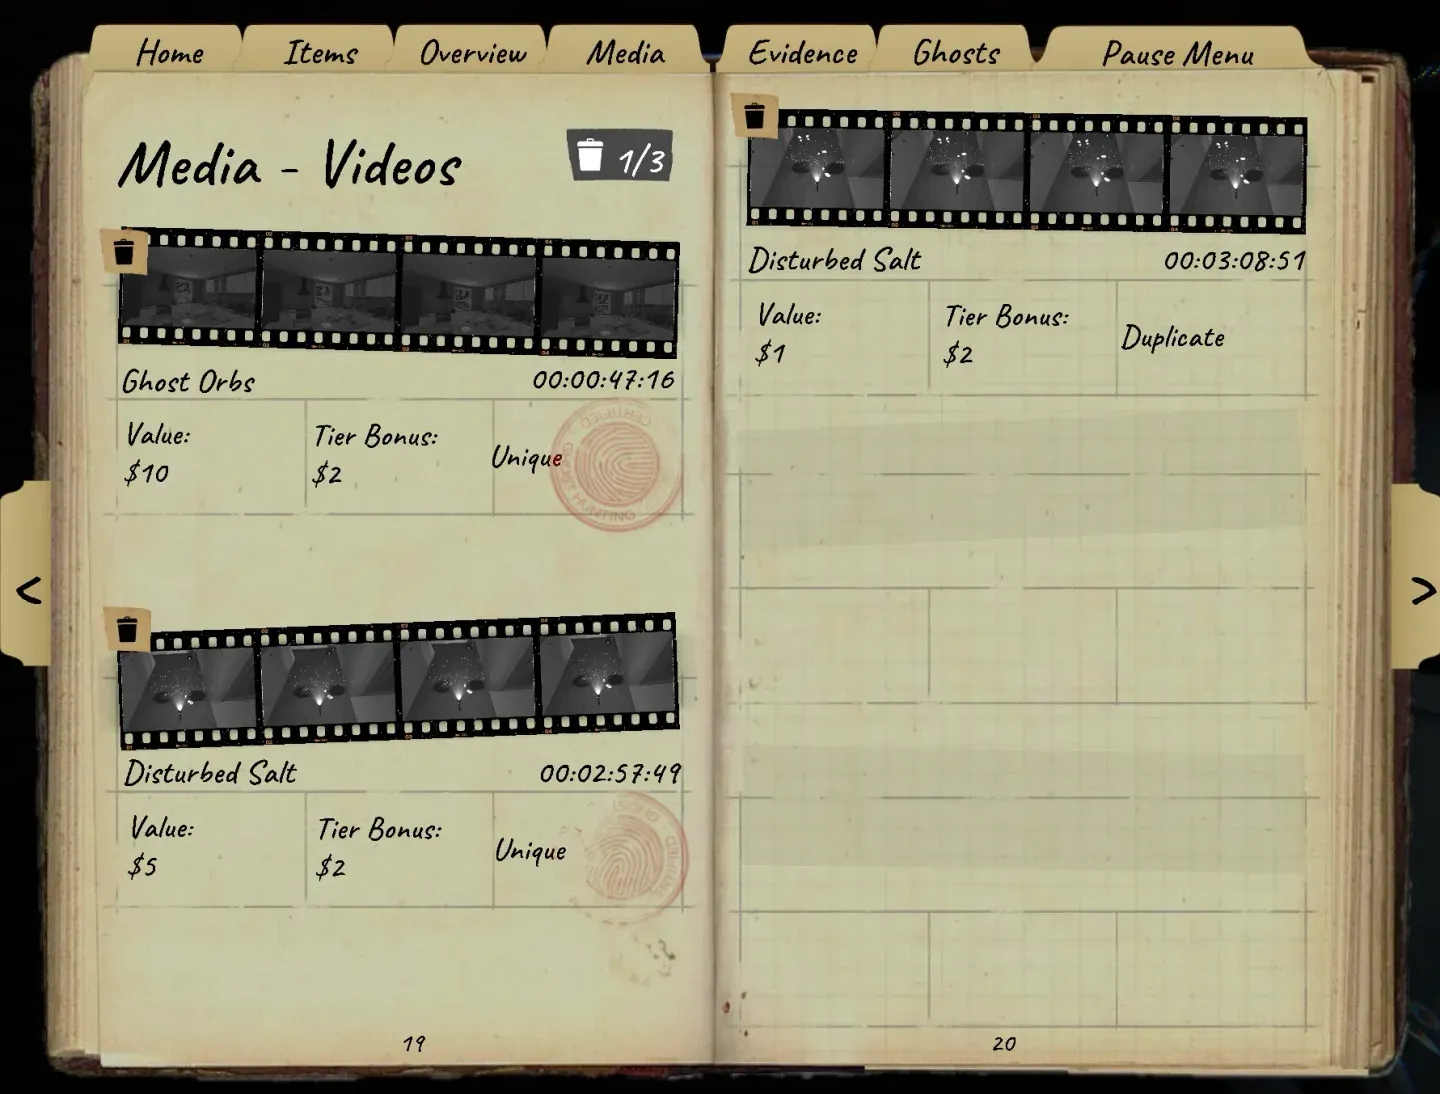 Home
Items
Overview
Media
Evidence
Ghosts
Pause Menu
Media - Videos
1/3
Ghost Orbs
00:00:47:16
Value:
$10
Tier Bonus:
$2
Unique
CERTIFIED
GHOST HUNTING
Disturbed Salt
00:02:57:49
Value:
$5
Tier Bonus:
$2
Unique
19
Disturbed Salt
00:03:08:51
Value:
$1
Tier Bonus:
$2
Duplicate
20
<
>